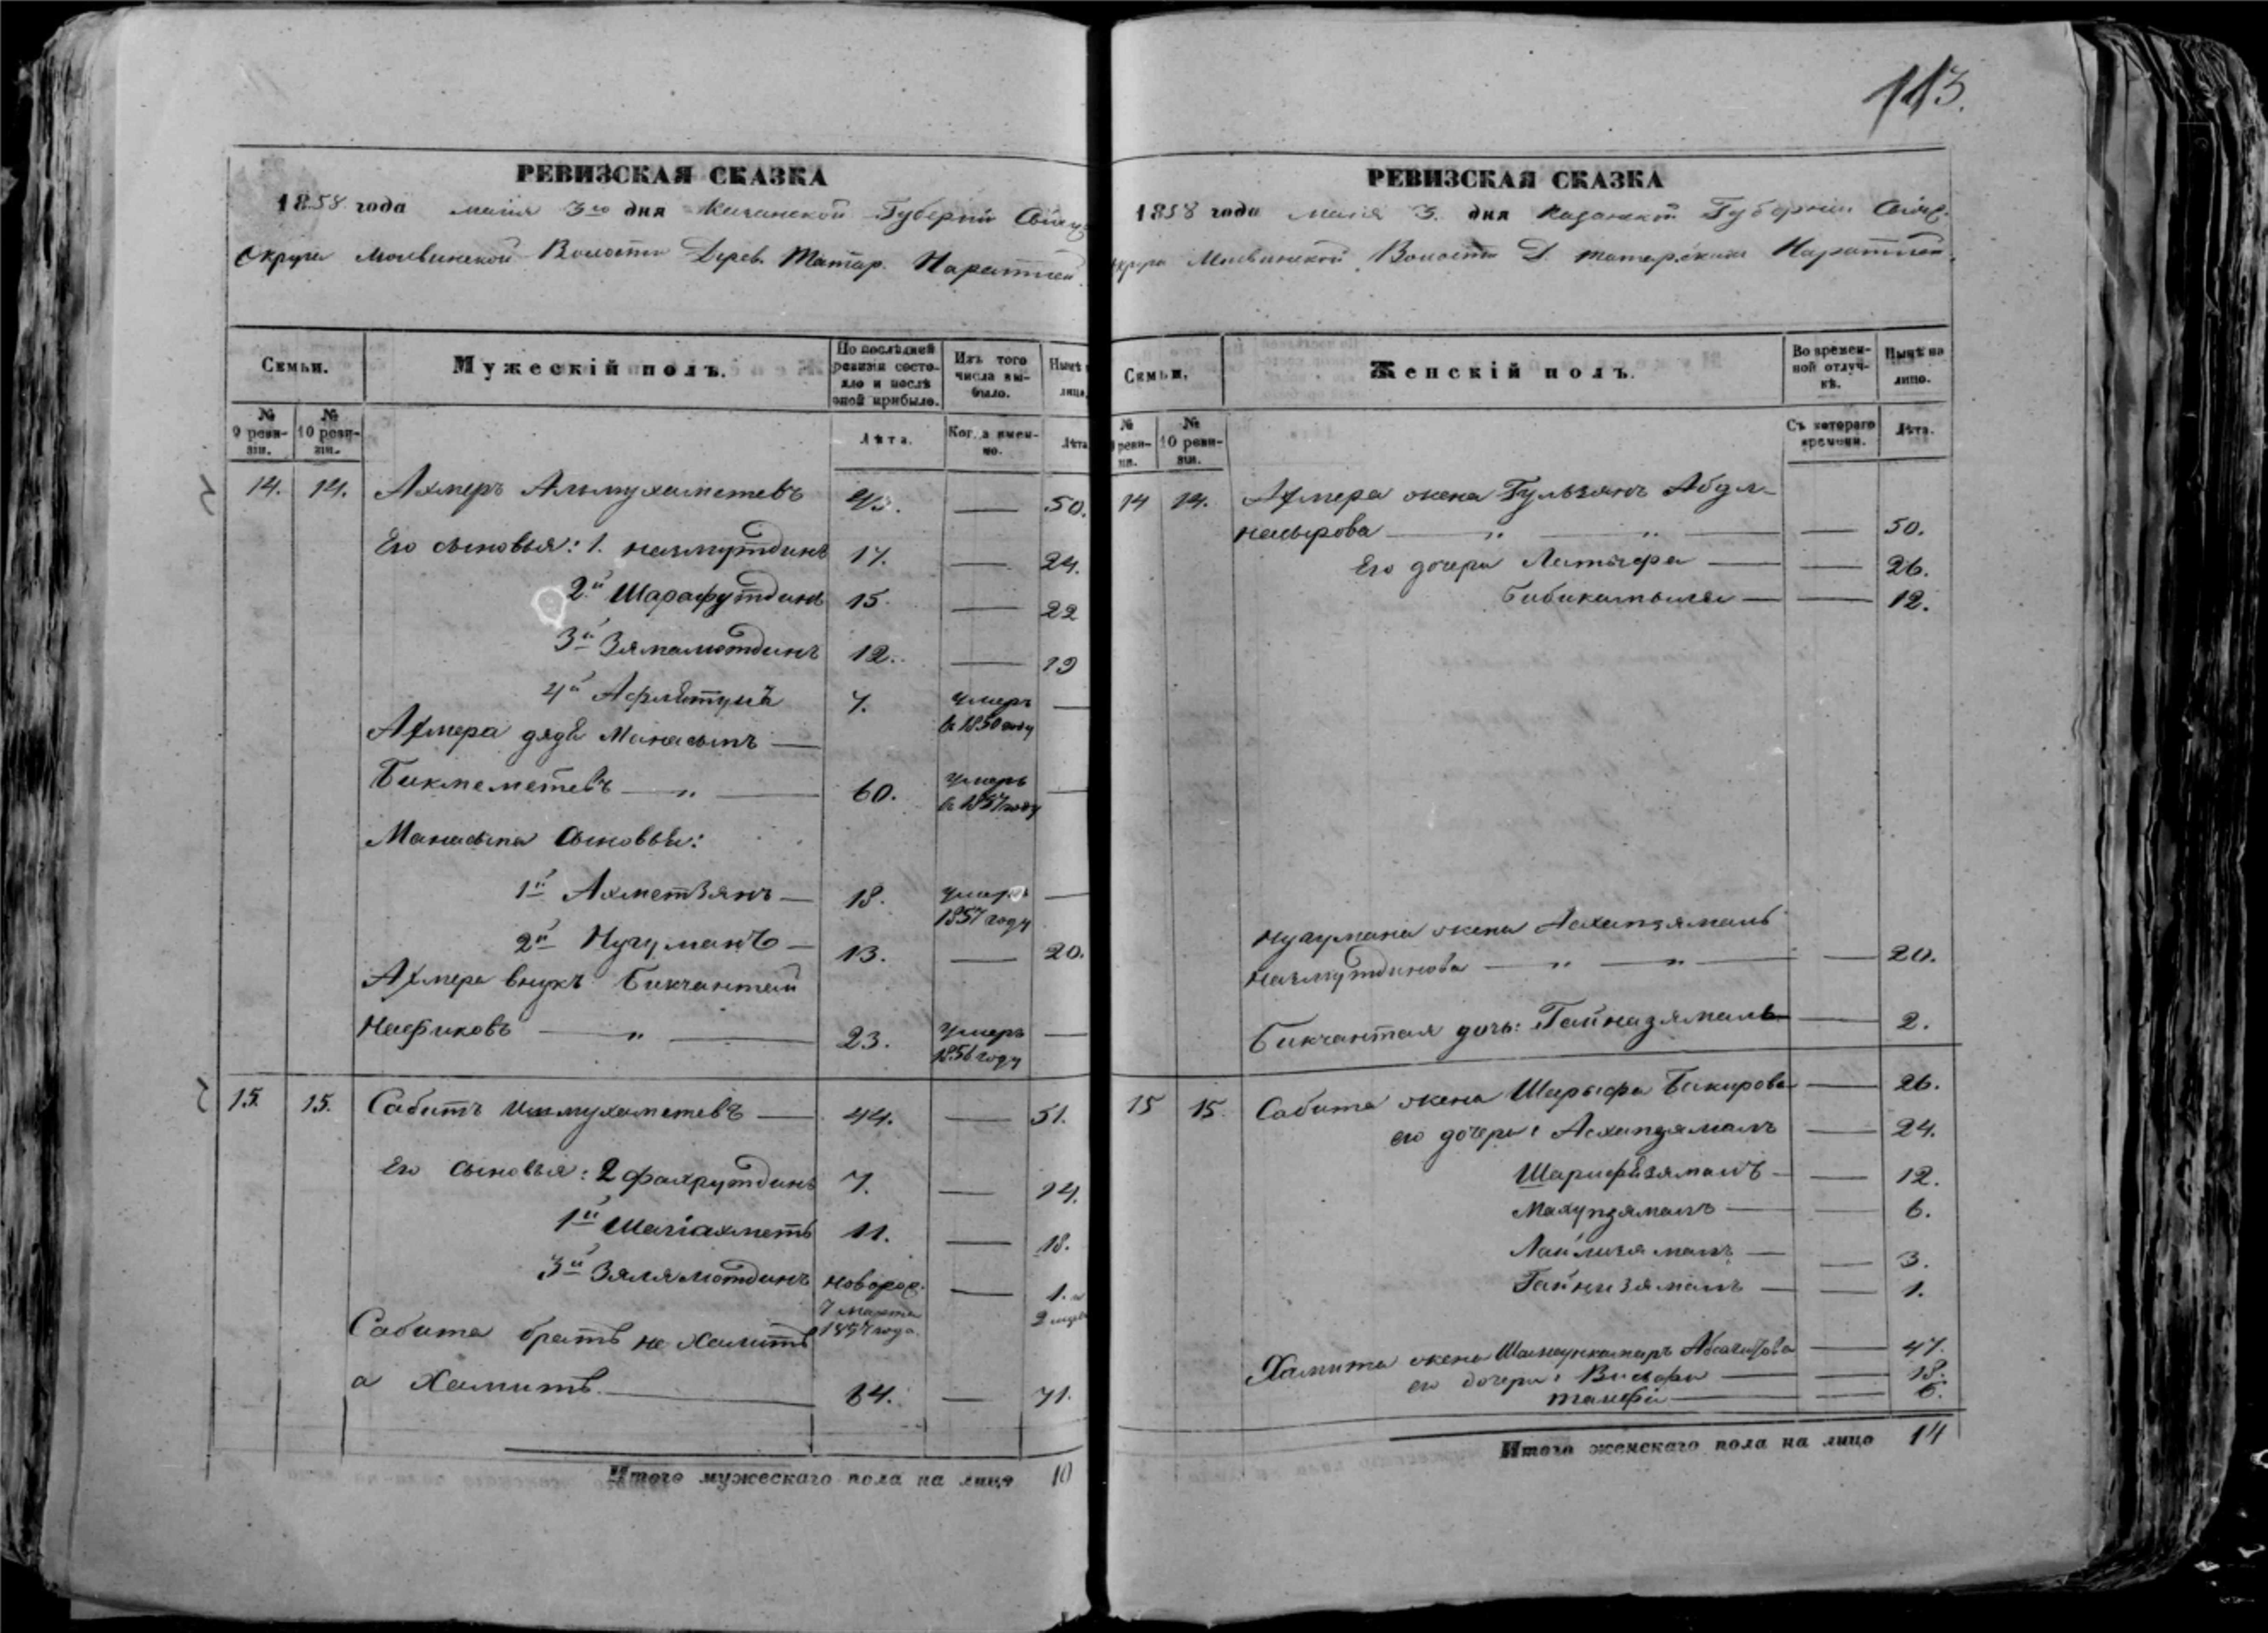 113.
РЕВИЗСКАЯ СКАЗКА
1858 года маія 3го дня Казанской Губерніи Свіяж
Округа Молвинской Волости Дерев. Татар. Наратлей
Семьи. Мужескій полъ. По послѣдней ревизіи состояло и послѣ оной прибыло. Изъ того числа выбыло. Нынѣ лицо.
№ 9 ревизіи. № 10 ревизіи. Лѣта. Когда именно. Лѣта
14. 14. Ахмеръ Альмухаметевъ 43. — 50.
Его сыновья: 1. нажмутдинъ 17. — 24.
2й Шарафутдинъ 15. — 22
3й Зямалютдинъ 12. — 19
4й Афлѣтунъ 7. умеръ в 1850 году —
Ахмера дядя Манасыпъ —
Бикмеметевъ — „ — 60. умеръ в 1857 году —
Манасыпа сыновья:
1й Ахметзянъ — 18. умеръ 1857 году —
2й Нугуманъ — 13. — 20.
Ахмера внукъ Бикчантай
Нафиковъ — „ — 23. умеръ 1856 году —
15. 15. Сабитъ Ишмухаметевъ — 44. — 51.
Его сыновья: 2 Фахрутдинъ 7. — 14.
1й Шагіахметъ 11. — 18.
3й Зялялютдинъ новорож. 7 марта 1857 года. — 1. и 2 мѣся
Сабита братъ не Халитъ
а Хамитъ. — 64. — 71.
Итого мужескаго пола на лицо 10
РЕВИЗСКАЯ СКАЗКА
1858 года маія 3. дня Казанской Губерніи Свіяж.
округа Молвинской Волости Д. татарскихъ Наратлей.
Семьи. Женскій полъ. Во временной отлучкѣ. Нынѣ на лицо.
№ 9 ревизіи. № 10 ревизіи. Съ котораго времени. Лѣта.
14 14. Ахмера жена Гульзянъ Абдл-
насырова — „ — „ — — 50.
Его дочери Латыфа — — 26.
Бибикамыля — — 12.
Нугумана жена Асхапзямалъ
нажмутдинова — „ — „ — — 20.
Бикчантая дочь: Гайназямалъ — 2.
15 15. Сабита жена Шарыфа Бакирова — 26.
его дочери: Асхапзямалъ — 24.
Шарифзямалъ — — 12.
Махупзямалъ — — 6.
Лайлизямалъ — — 3.
Гайнизямалъ — — 1.
Хамита жена Шамсикамаръ — 47.
его дочери: — — 18.
— — 6.
Итого женскаго пола на лицо 14